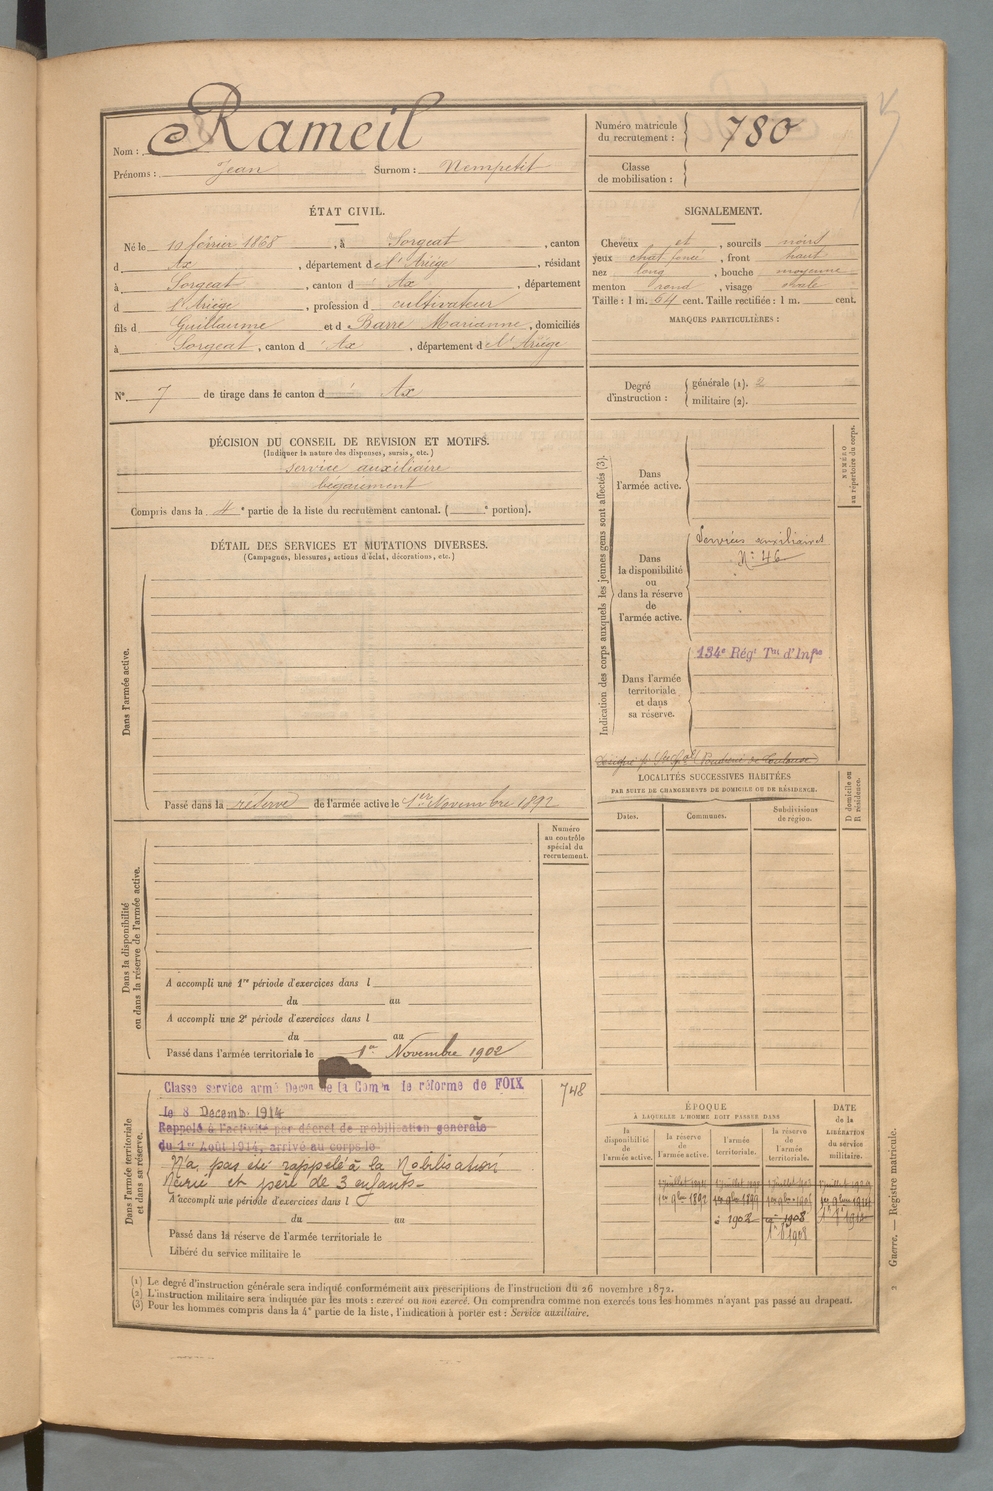 Nom : Rameil
Prénoms : Jean Surnom : Nempetit
Numéro matricule du recrutement : 780
Classe de mobilisation :
ÉTAT CIVIL.
Né le 10 février 1868, à Sorgeat, canton
d Ax, département de l'Ariège, résidant
à Sorgeat, canton d Ax, département
d l'Ariège, profession d cultivateur
fils d Guillaume et d Barre Marianne, domiciliés
à Sorgeat, canton d Ax, département de l'Ariège
N° 7 de tirage dans le canton d Ax
SIGNALEMENT.
Cheveux et, sourcils noirs
yeux chat. foncé, front haut
nez long, bouche moyenne
menton rond, visage ovale
Taille : 1 m. 64 cent. Taille rectifiée : 1 m. cent.
MARQUES PARTICULIÈRES :
Degré d'instruction : générale (1). 2
militaire (2).
DÉCISION DU CONSEIL DE REVISION ET MOTIFS.
(Indiquer la nature des dispenses, sursis, etc.)
service auxiliaire
bégaiement
Compris dans la 4e partie de la liste du recrutement cantonal. ( e portion).
DÉTAIL DES SERVICES ET MUTATIONS DIVERSES.
(Campagnes, blessures, actions d'éclat, décorations, etc.)
Dans l'armée active.
Passé dans la réserve de l'armée active le 1er Novembre 1892
Numéro au contrôle spécial du recrutement.
Dans la disponibilité ou dans la réserve de l'armée active.
A accompli une 1re période d'exercices dans l
du au
A accompli une 2e période d'exercices dans l
du au
Passé dans l'armée territoriale le 1er Novembre 1902
Dans l'armée territoriale et dans sa réserve.
Classe service armé Decon de la Comon de réforme de FOIX
le 8 Decemb. 1914
748
Rappelé à l'activité par décret de mobilisation générale
du 1er Août 1914, arrivé au corps le
N'a pas été rappelé à la Mobilisation
Marié et père de 3 enfants
A accompli une période d'exercices dans l
du au
Passé dans la réserve de l'armée territoriale le
Libéré du service militaire le
Indication des corps auxquels les jeunes gens sont affectés (3).
NUMÉRO au répertoire du corps.
Dans l'armée active.
Dans la disponibilité ou dans la réserve de l'armée active.
Services auxiliaires
N° 46
Dans l'armée territoriale et dans sa réserve.
134e Régt Tal d'Infie
LOCALITÉS SUCCESSIVES HABITÉES
PAR SUITE DE CHANGEMENTS DE DOMICILE OU DE RÉSIDENCE.
D domicile ou R résidence.
Dates. Communes. Subdivisions de région.
ÉPOQUE
À LAQUELLE L'HOMME DOIT PASSER DANS
DATE de la LIBÉRATION du service militaire.
la disponibilité de l'armée active.
la réserve de l'armée active.
l'armée territoriale.
la réserve de l'armée territoriale.
1er 9bre 1892 1er 9bre 1899
1902 1908
1908
(1) Le degré d'instruction générale sera indiqué conformément aux prescriptions de l'instruction du 26 novembre 1872.
(2) L'instruction militaire sera indiquée par les mots : exercé ou non exercé. On comprendra comme non exercés tous les hommes n'ayant pas passé au drapeau.
(3) Pour les hommes compris dans la 4e partie de la liste, l'indication à porter est : Service auxiliaire.
Guerre. — Registre matricule. 2